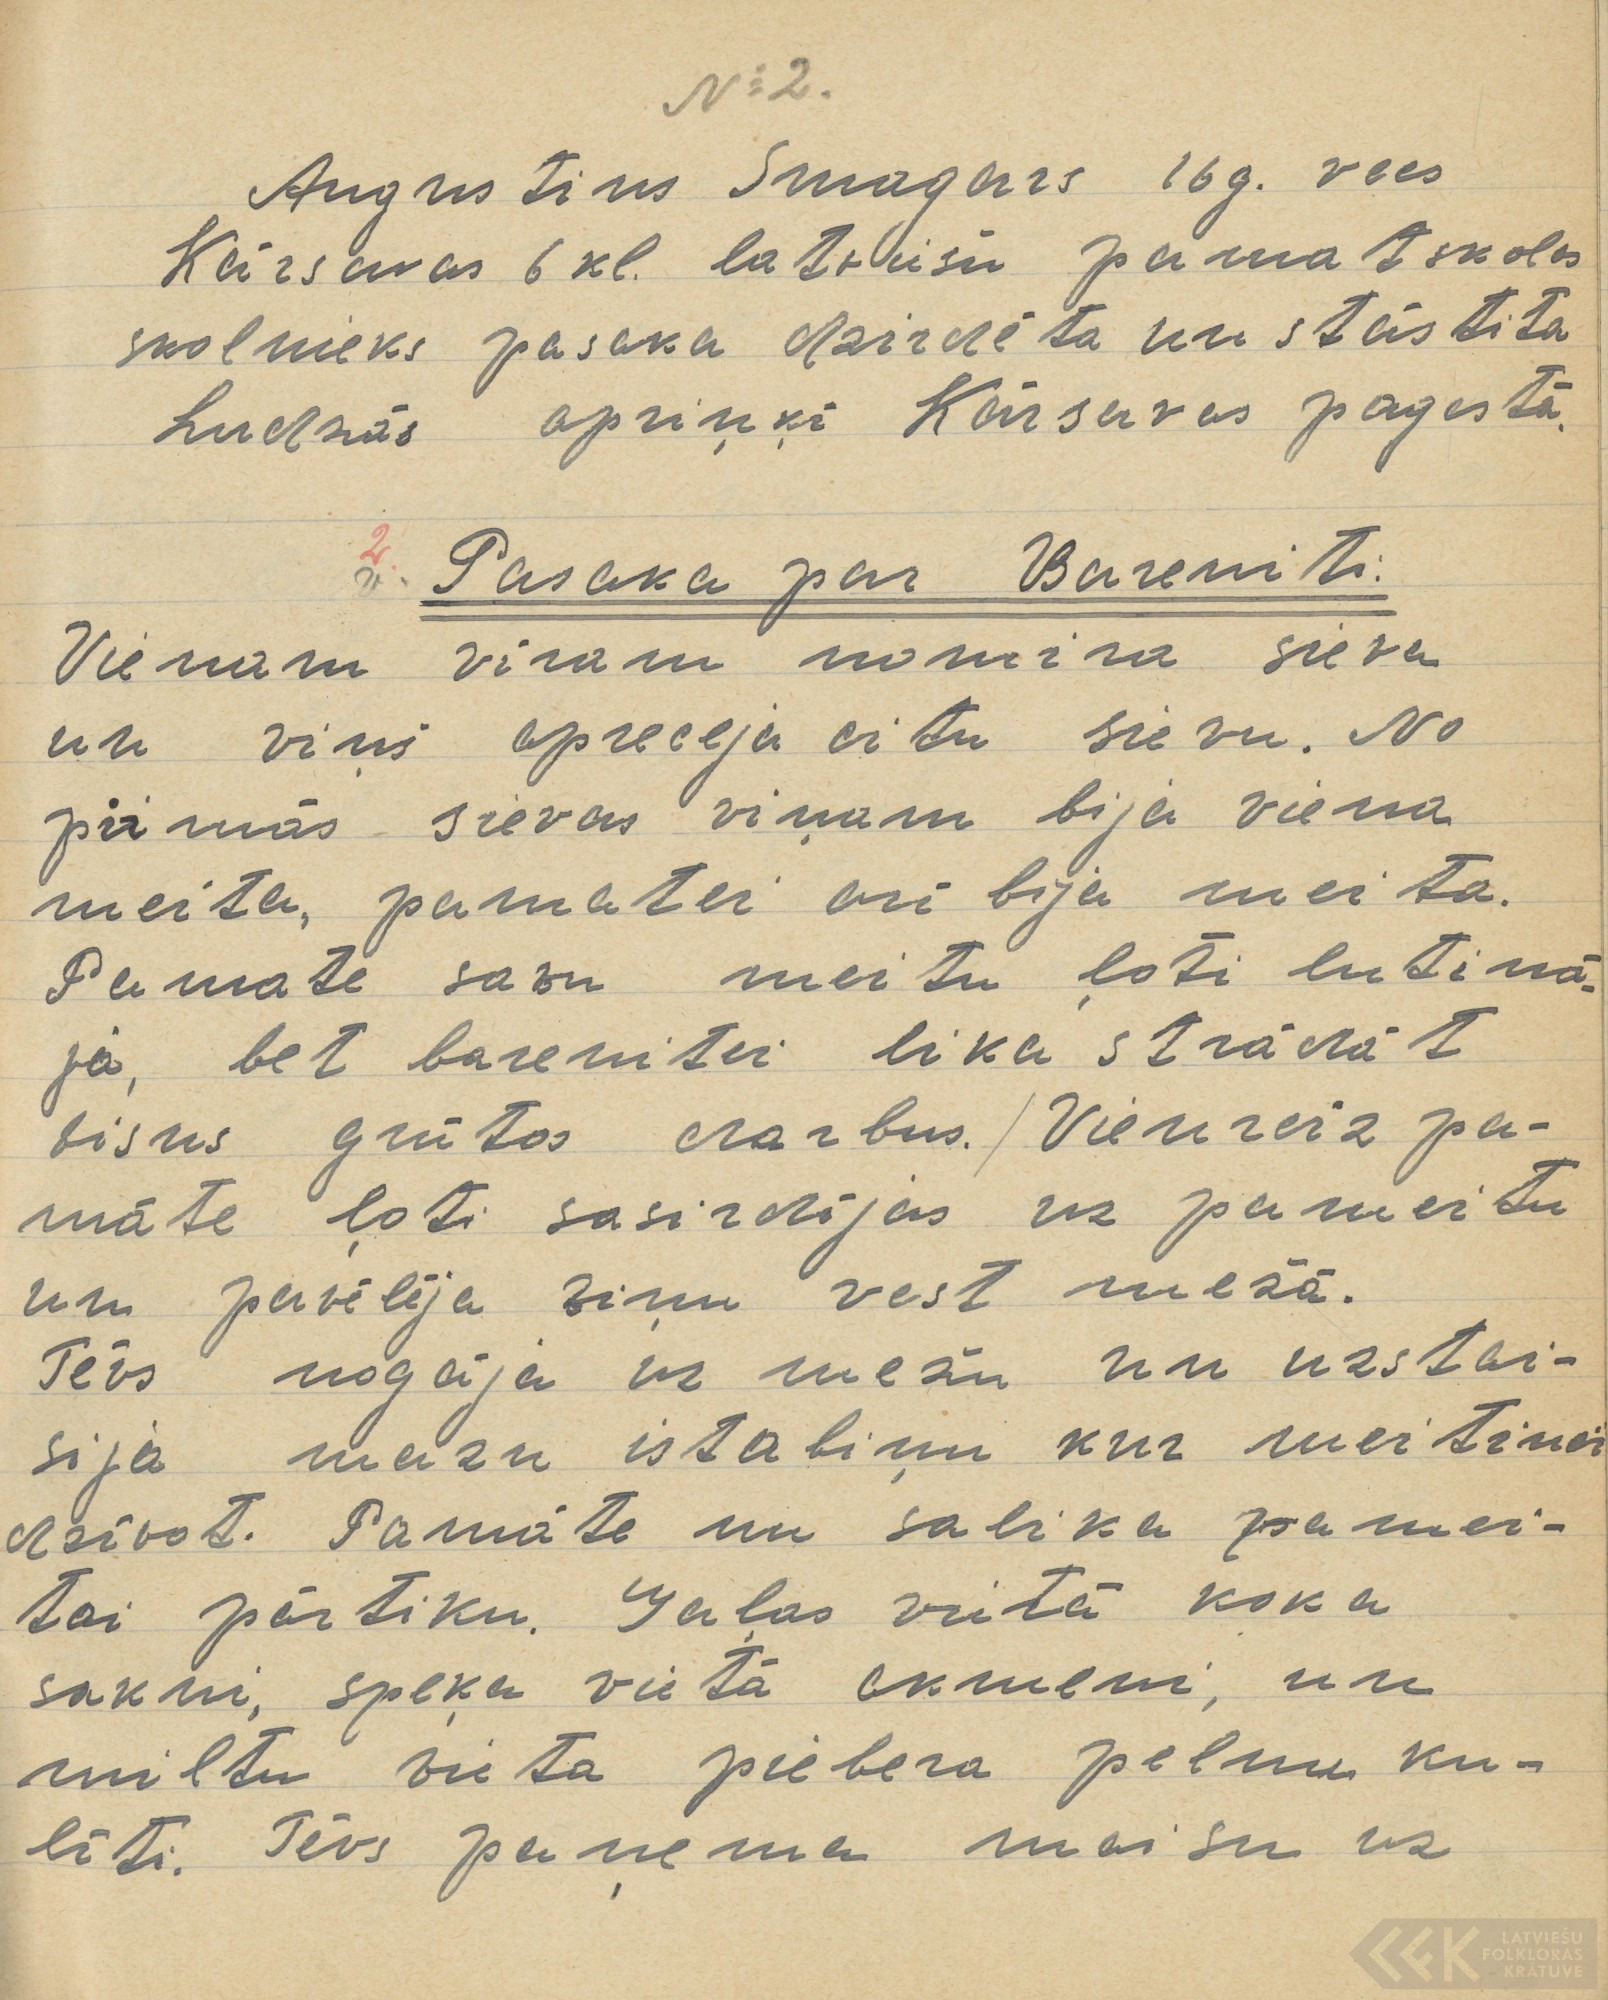 № 2.
Augustins Smagars 16 g. vecs
Kārsavas 6 kl. latviešu pamatskolas
skolnieks pasaka dzirdēta un stāstita
Ludzās apriņķi Kārsavas pagastā.
2.
2. Pasaka par Bareniti.
Vienam viram nomira sieva
un viņš apreceja citu sievu. No
pirmās sievas viņam bija viena
meita, pamatei arī bija meita.
Pamate savu meitu ļoti lutinā-
ja, bet barenitei lika strādāt
visus grūtos darbus. / Vienreiz pa-
māte ļoti sasirdījas uz pameitu
un pavēlēja viņu vest mežā.
Tēvs nogāja uz mežu un uzstai-
sija mazu istabiņu kur meitinei
dzīvot. Pamāte nu salika pamei-
tai pārtiku. Gaļas vietā koka
sakni, speķa vietā akmeni, un
miltu vieta piebera pelnu ku-
līti. Tēvs paņema maisu uz
LATVIEŠU
FOLKLORAS
KRĀTUVE